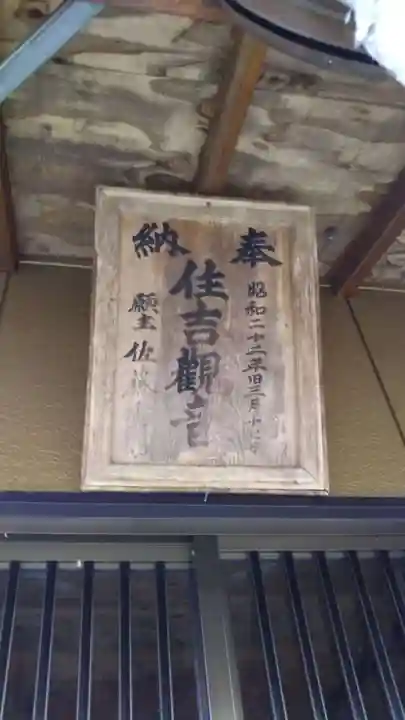 奉納
昭和二十二年旧三月十七
住吉觀音
願主 佐藤